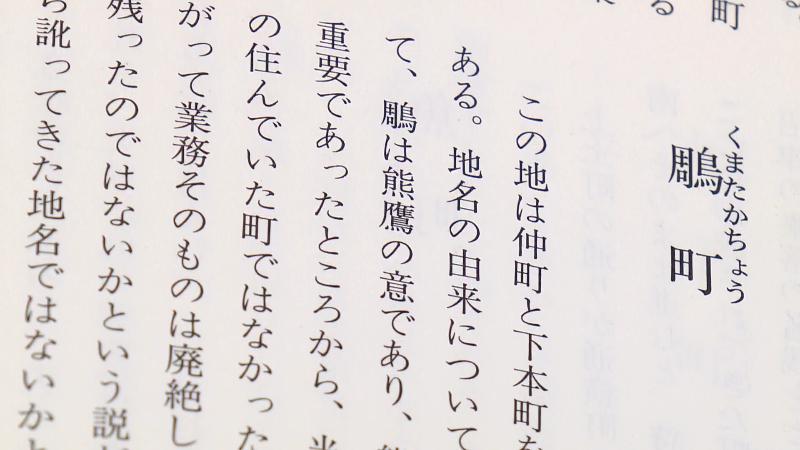 町
る
くまたかちょう
鵰町
この地は仲町と下本町を
ある。地名の由来について
て、鵰は熊鷹の意であり、
重要であったところから、
の住んでいた町ではなかった
がって業務そのものは廃絶し
残ったのではないかという説
ら訛ってきた地名ではないかと